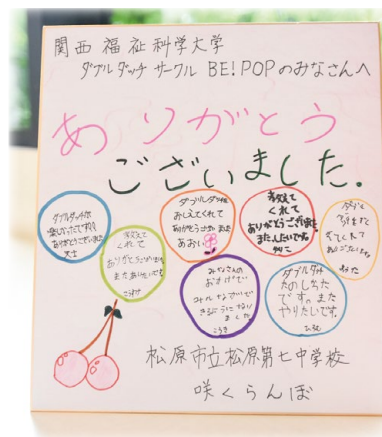 関西福祉科学大学
ダブルダッチサークル BE!POPのみなさんへ
ありがとう
ございました.
ダブルダッチが
楽しかったです
ありがとうございました
教えて
くれて
ありがとうございます
またありたいです
ダブルダッチを
おしえてくれて
ありがとうございました
あおい
教えて
くれて
ありがとうございます
またしたいです
きてくれて
ありがとうございました
みなさんの
おかげで
ました
こうき
ダブルダッチ
たのしかった
です。また
やりたいです。
松原市立松原第七中学校
咲くらんぼ